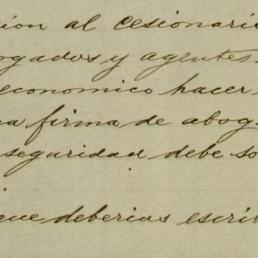 cion al cesionari
ogados y agentes.
economico hacer
a firma de abog
seguridad debe so
que deberias escri